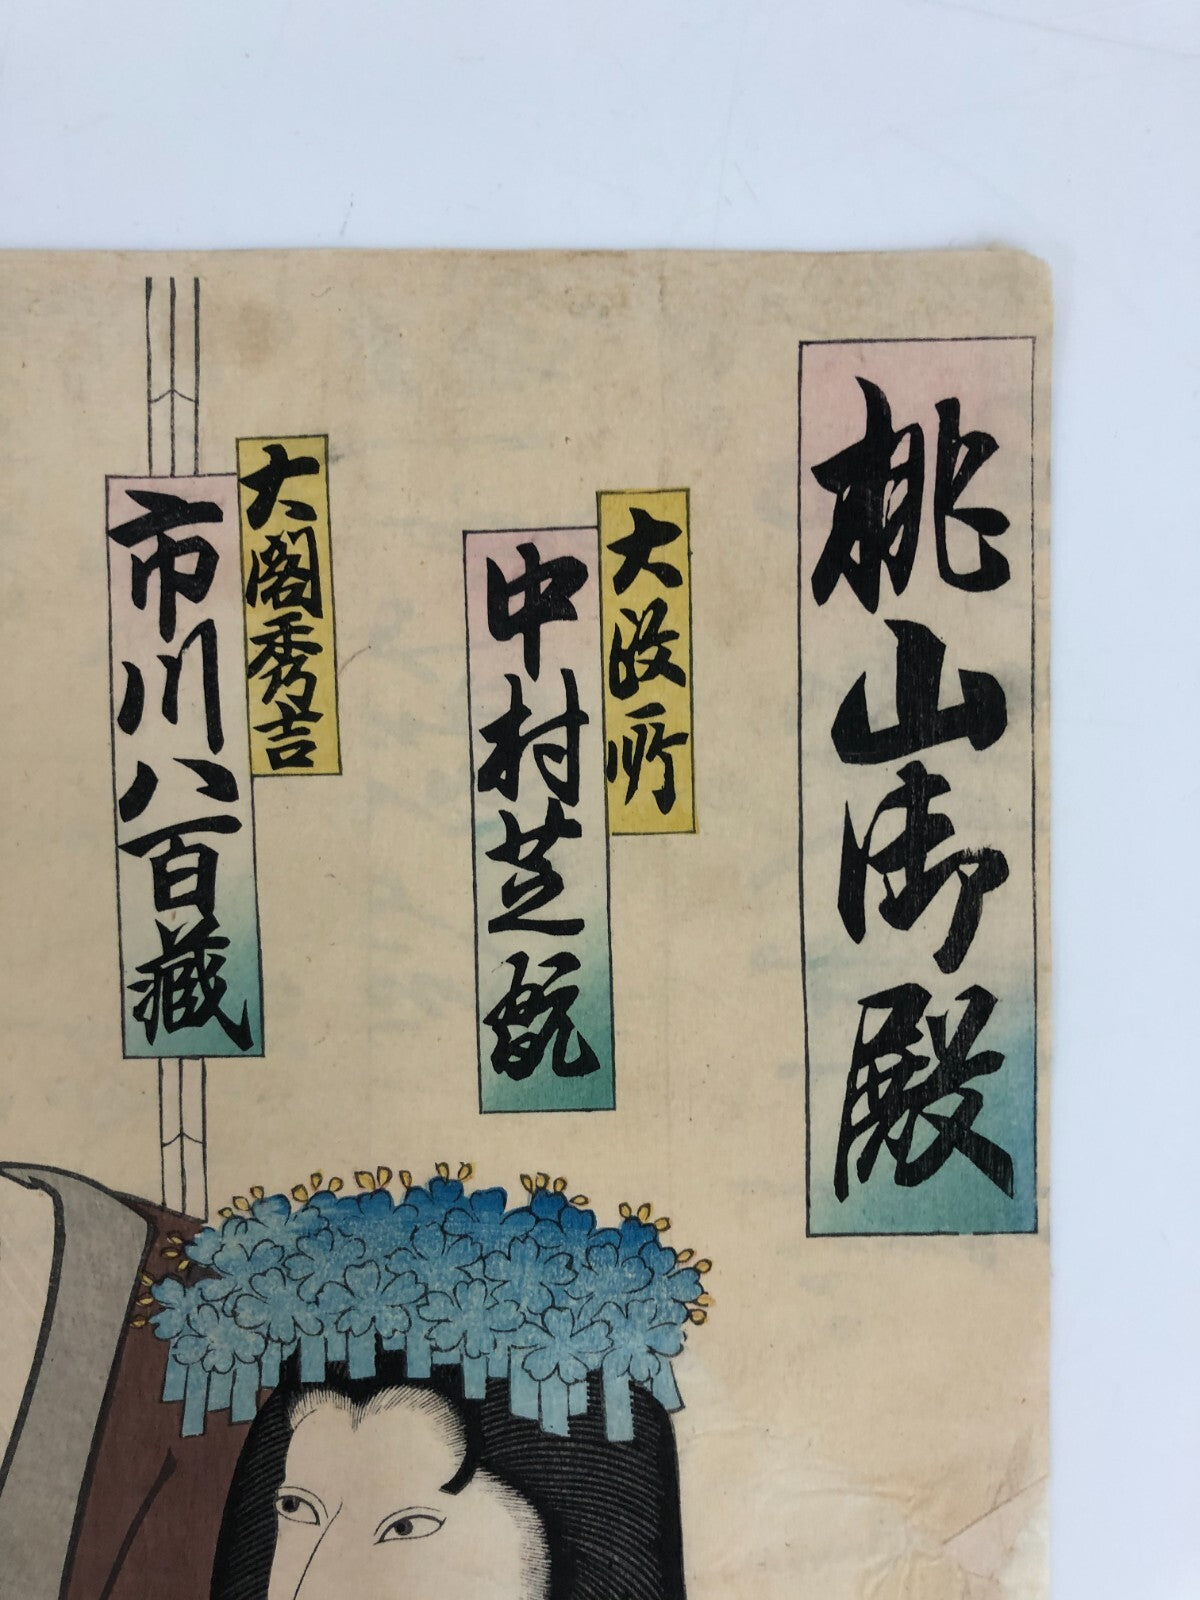 桃山御殿
大政所
中村芝翫
大閤秀吉
市川八百蔵